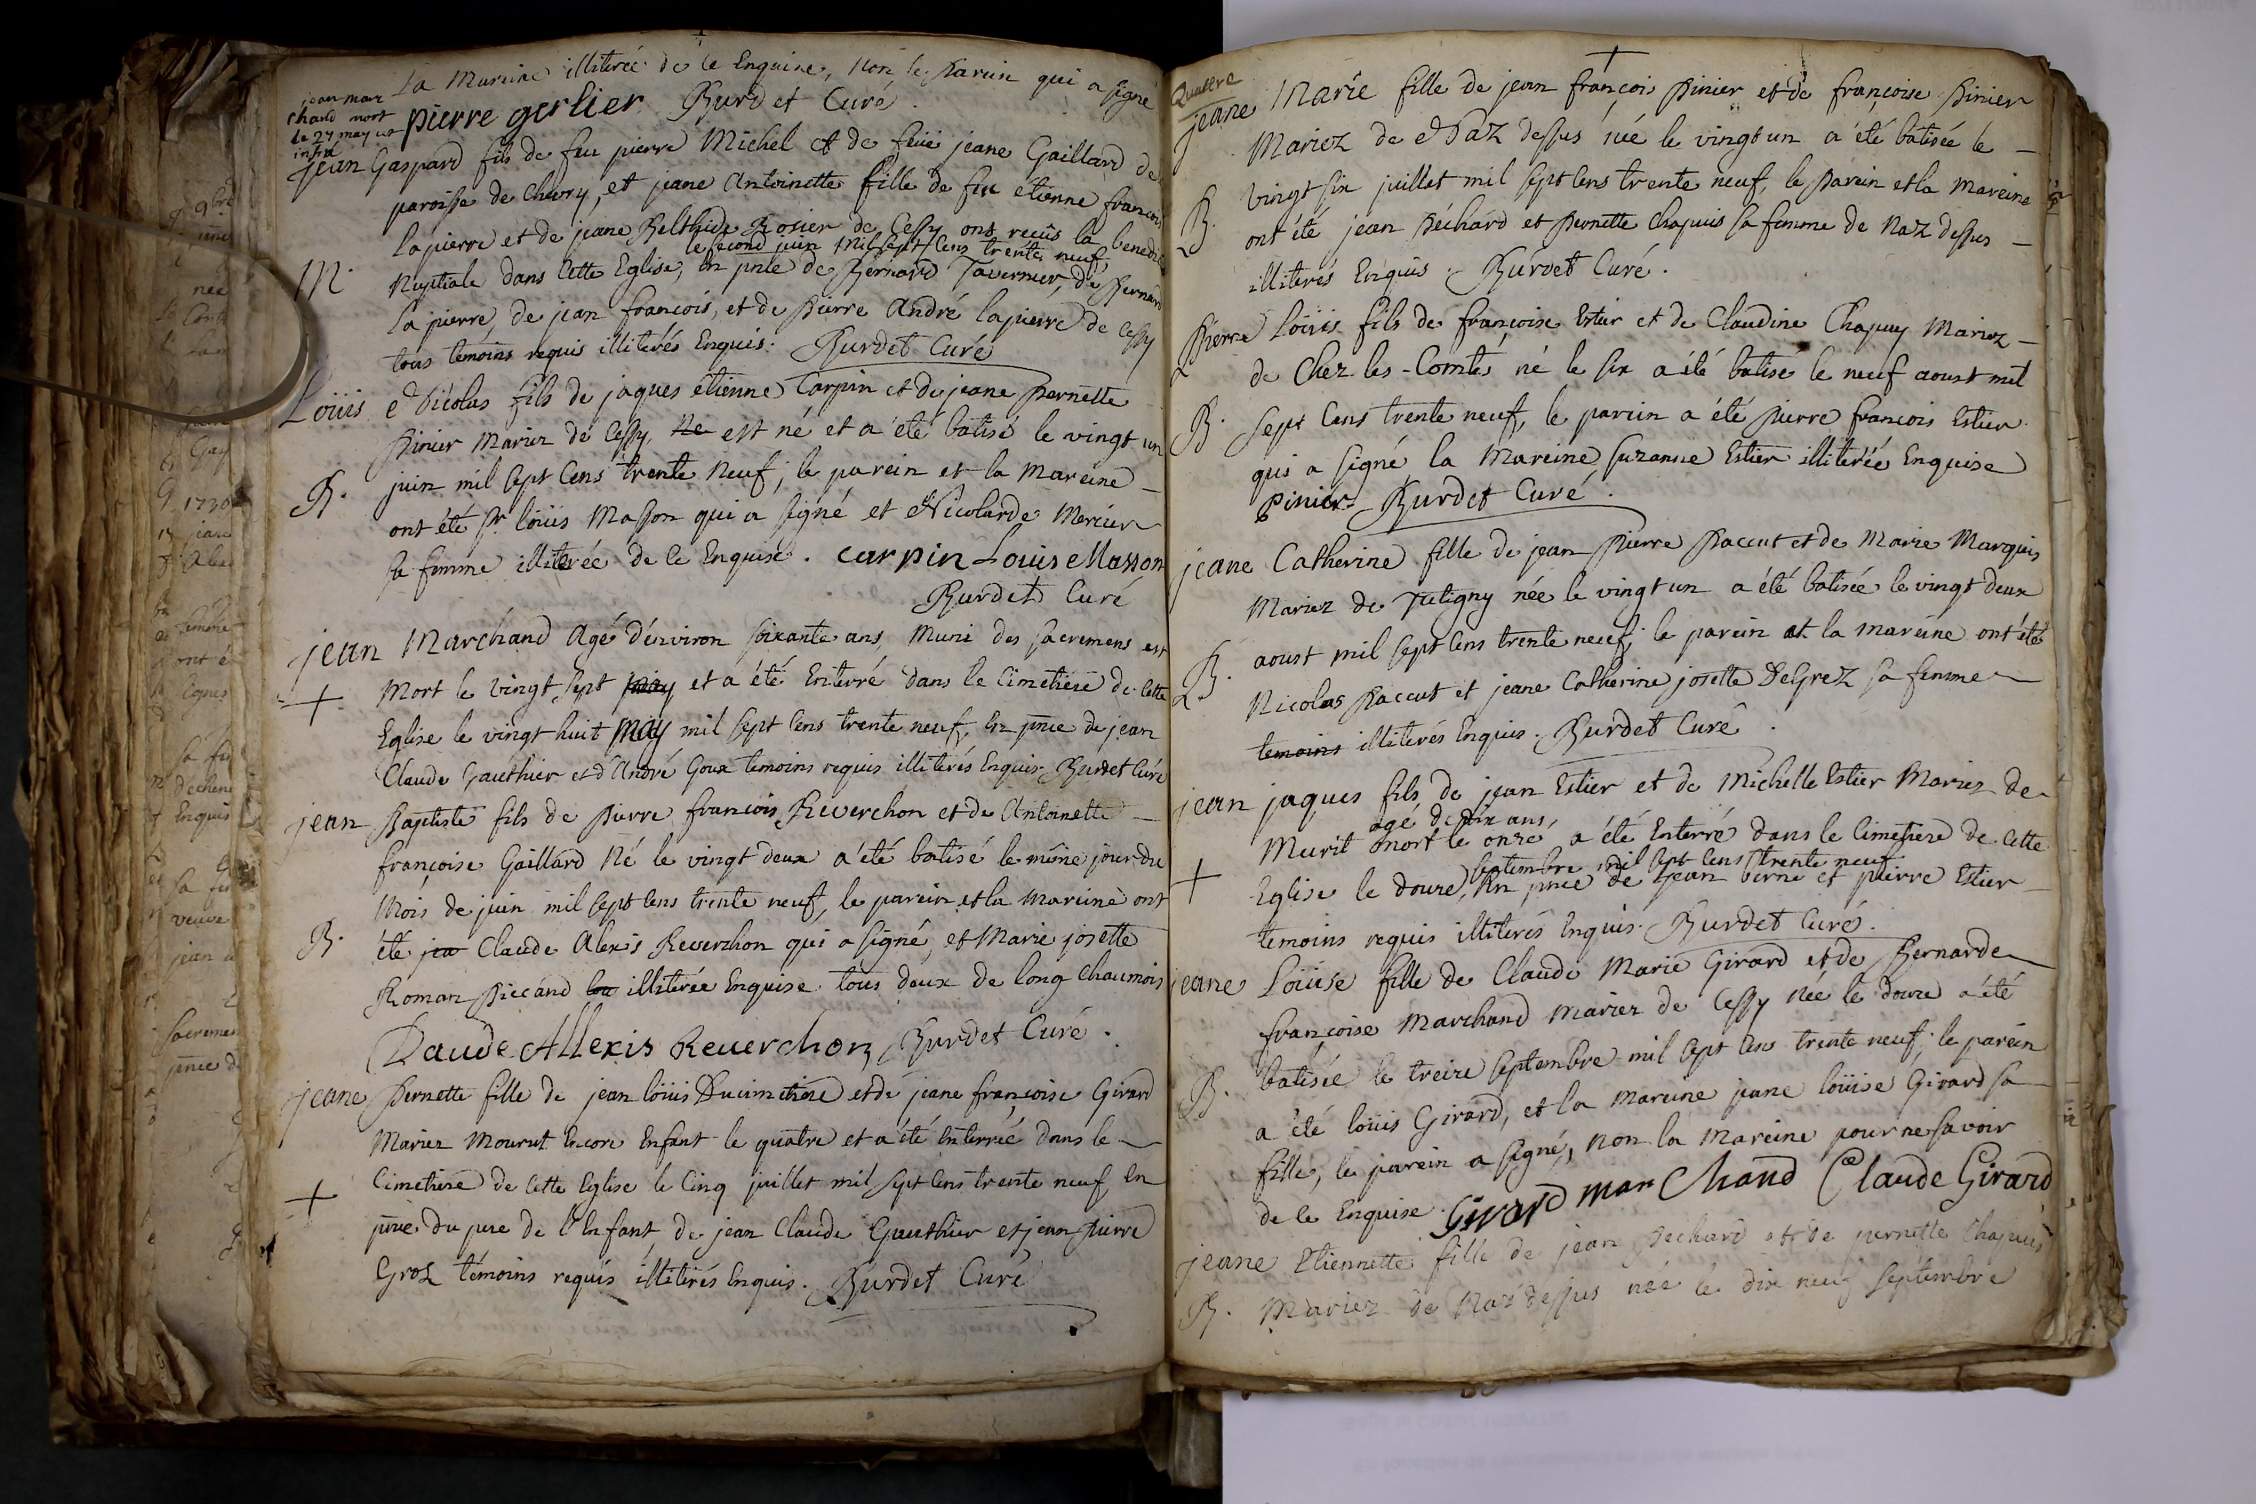 La Mareine illiterée de ce Enquise, Non le Parein qui a signé
jean mar
chand mort
le 27 may ut
infrà
pierre gerlier Burdet Curé.
jean Gaspard fils de feu pierre Michel et de feüe jeane Gaillard de
paroisse de Chevry, et jeane Antoinette fille de feu étienne francois
Lapierre et de jeane Rosier de Cessy ont reçûs la bened
le second juin mil sept cens trente neuf,
M.
Nuptiale dans Cette Eglise, En pnce de Bernard Tavernier, de Bernard
Lapierre, de jean francois, et de Pierre André lapierre de Cessy
tous témoins requis illiterés Enquis. Burdet Curé
Loüis Nicolas fils de jaques étienne Carpin et de jeane Pernette
Pinier Mariez de Cessy, Ne est né et a été batisé le vingt un
B.
juin mil sept Cens trente Neuf, le parein et la Mareine
ont été Sr. loüis Masson qui a signé et Nicolarde Mercier
sa femme illiterée de ce Enquise. carpin Louis Masson
Burdet Curé
jean Marchand Agé d'Environ soixante ans, Muni des sacremens est
+
Mort le vingt sept may et a été Enterré dans le Cimetiere de Cette
Eglise le vingt huit may mil sept Cens trente neuf, En pnce de jean
Claude Gauthier et d'André Goux temoins requis illiterés Enquis. Burdet Curé
jean Baptiste fils de Pierre francois Reverchon et de Antoinette
françoise Gaillard Né le vingt deux a été batisé le même jour du
Mois de juin mil sept cens trente neuf, le parein et la Mareine ont
B.
été jea Claude Alexis Reverchon qui a signé, et Marie josette
Roman Piccand illiterée Enquise tous deux de long chaumois
Claude Allexis Reuerchon Burdet Curé.
jeane Pernette fille de jean loüis Ducimetiere et de jeane françoise Girard
Mariez Mourut Encore Enfant le quatre et a été Enterrée dans le
+
Cimetiere de Cette Eglise le Cinq juillet mil sept Cens trente neuf, En
pnce du pere de l'Enfant de jean Claude Gauthier et jean pierre
Groz témoins requis illiterés Enquis. Burdet Curé
+
Quatere
jeane Marie fille de jean françois Pinier et de françoise Pinier
Mariez de Naz dessus née le vingt un a été batisée le
vingt six juillet mil sept Cens trente neuf, le Parein et la Mareine
B.
ont été jean Péchard et Pernette Chapuis sa femme de Naz dessus
illiterés Enquis. Burdet Curé.
Pierre Loüis fils de françoise Estier et de Claudine Chapuy Mariez
de Chez les-Comtes né le six a été batisé le neuf aoust mil
B.
sept Cens trente neuf, le parein a été pierre françois Estier
qui a signé la Mareine, suzanne Estier illiterée Enquise
pinier Burdet Curé.
jeane Catherine fille de jean Pierre Paccut et de Marie Marquis
Mariez de Tutigny née le vingt un a été batisée le vingt deux
aoust mil sept Cens trente neuf, le parein et la mareine ont été
B.
Nicolas Paccut et jeane Catherine josette DeGrez sa femme
temoins illiterés Enquis. Burdet Curé
jean jaques fils de jean Estier et de Michelle Estier Mariez de
agé de dix ans,
Murit mort le onze a été Enterré dans le Cimetiere de Cette
septembre mil sept Cens trente neuf
+
Eglise le douze, En pnce de jean berne et pierre Estier
temoins requis illiterés Enquis. Burdet Curé.
jeane Loüise fille de Claude Marie Girard et de Bernarde
françoise Marchand Mariez de Cessy Née le douze a été
batisée le treize septembre mil sept Cens trente neuf, le parein
B.
a été loüis Girard, et la Mareine jeane loüise Girard sa
fille, le parein a signé, non la Mareine pour ne savoir
de ce Enquise. Girard marchand Claude Girard
jeane Etiennette fille de jean Pechard et de pernette Chapuis
B.
Mariez de Naz dessus née le dix neuf septembre